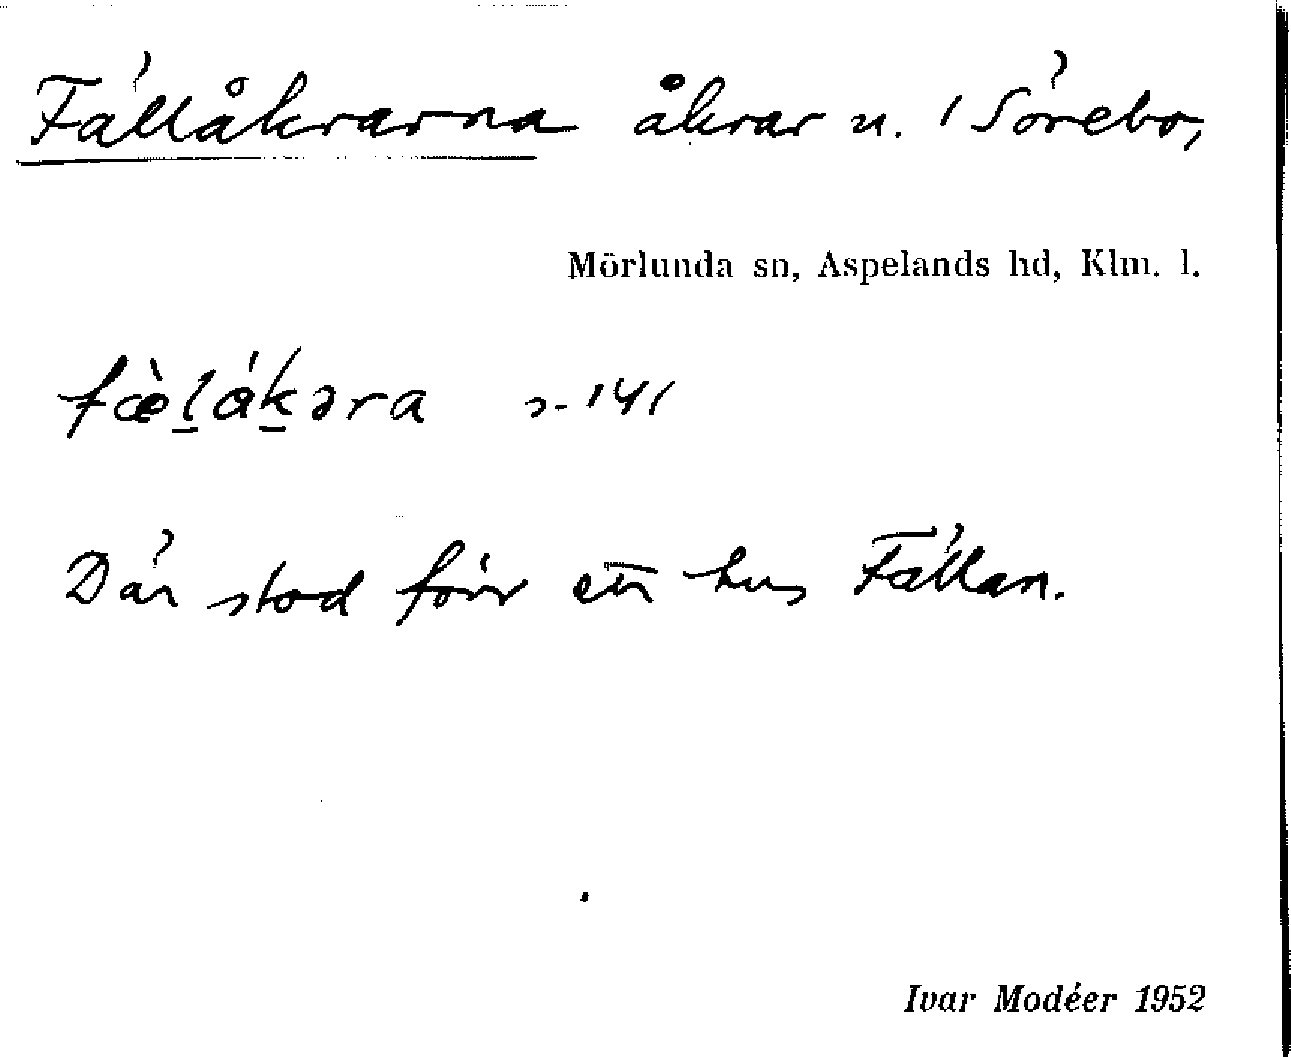 Fällåkrarna åkrar u. / Sörebo,
Mörlunda sn, Aspelands hd, Klm. l.
fæ̀l̠ák̠əra
Där stod förr ett hus Fällan.
Ivar Modéer 1952